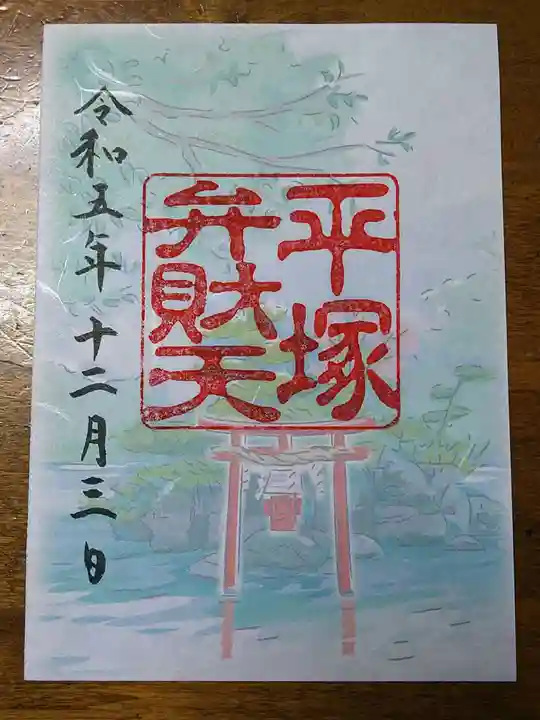 平塚
弁財天
令和五年十二月三日